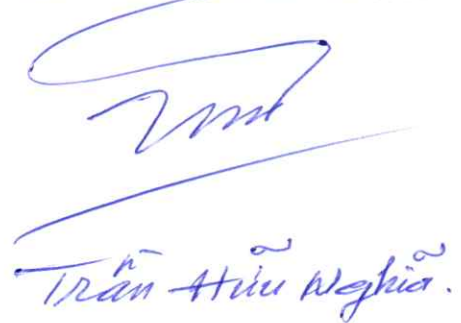 Trần Hữu Nghĩa.